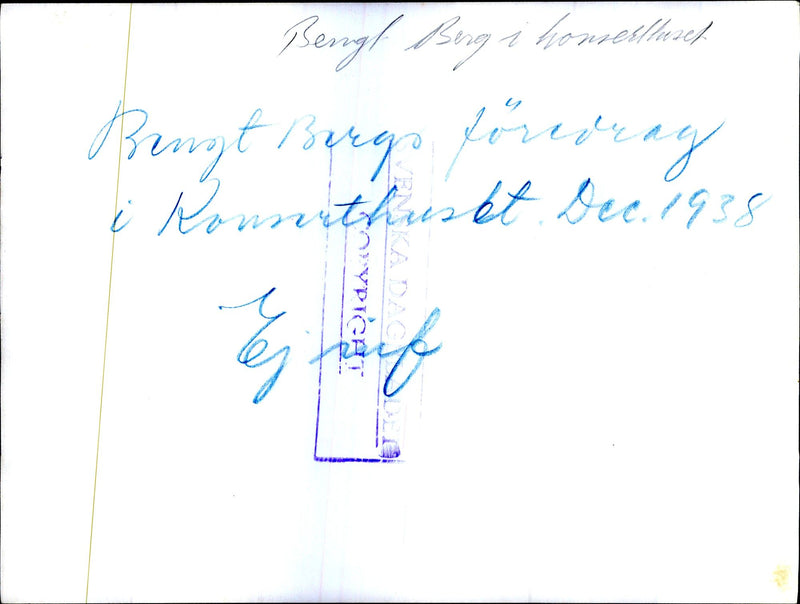 Bengt Berg i konserthuset
Bengt Bergs föredrag
i Konserthuset. Dec. 1938
Ej
SVENSKA DAGBLADET
COPYRIGHT